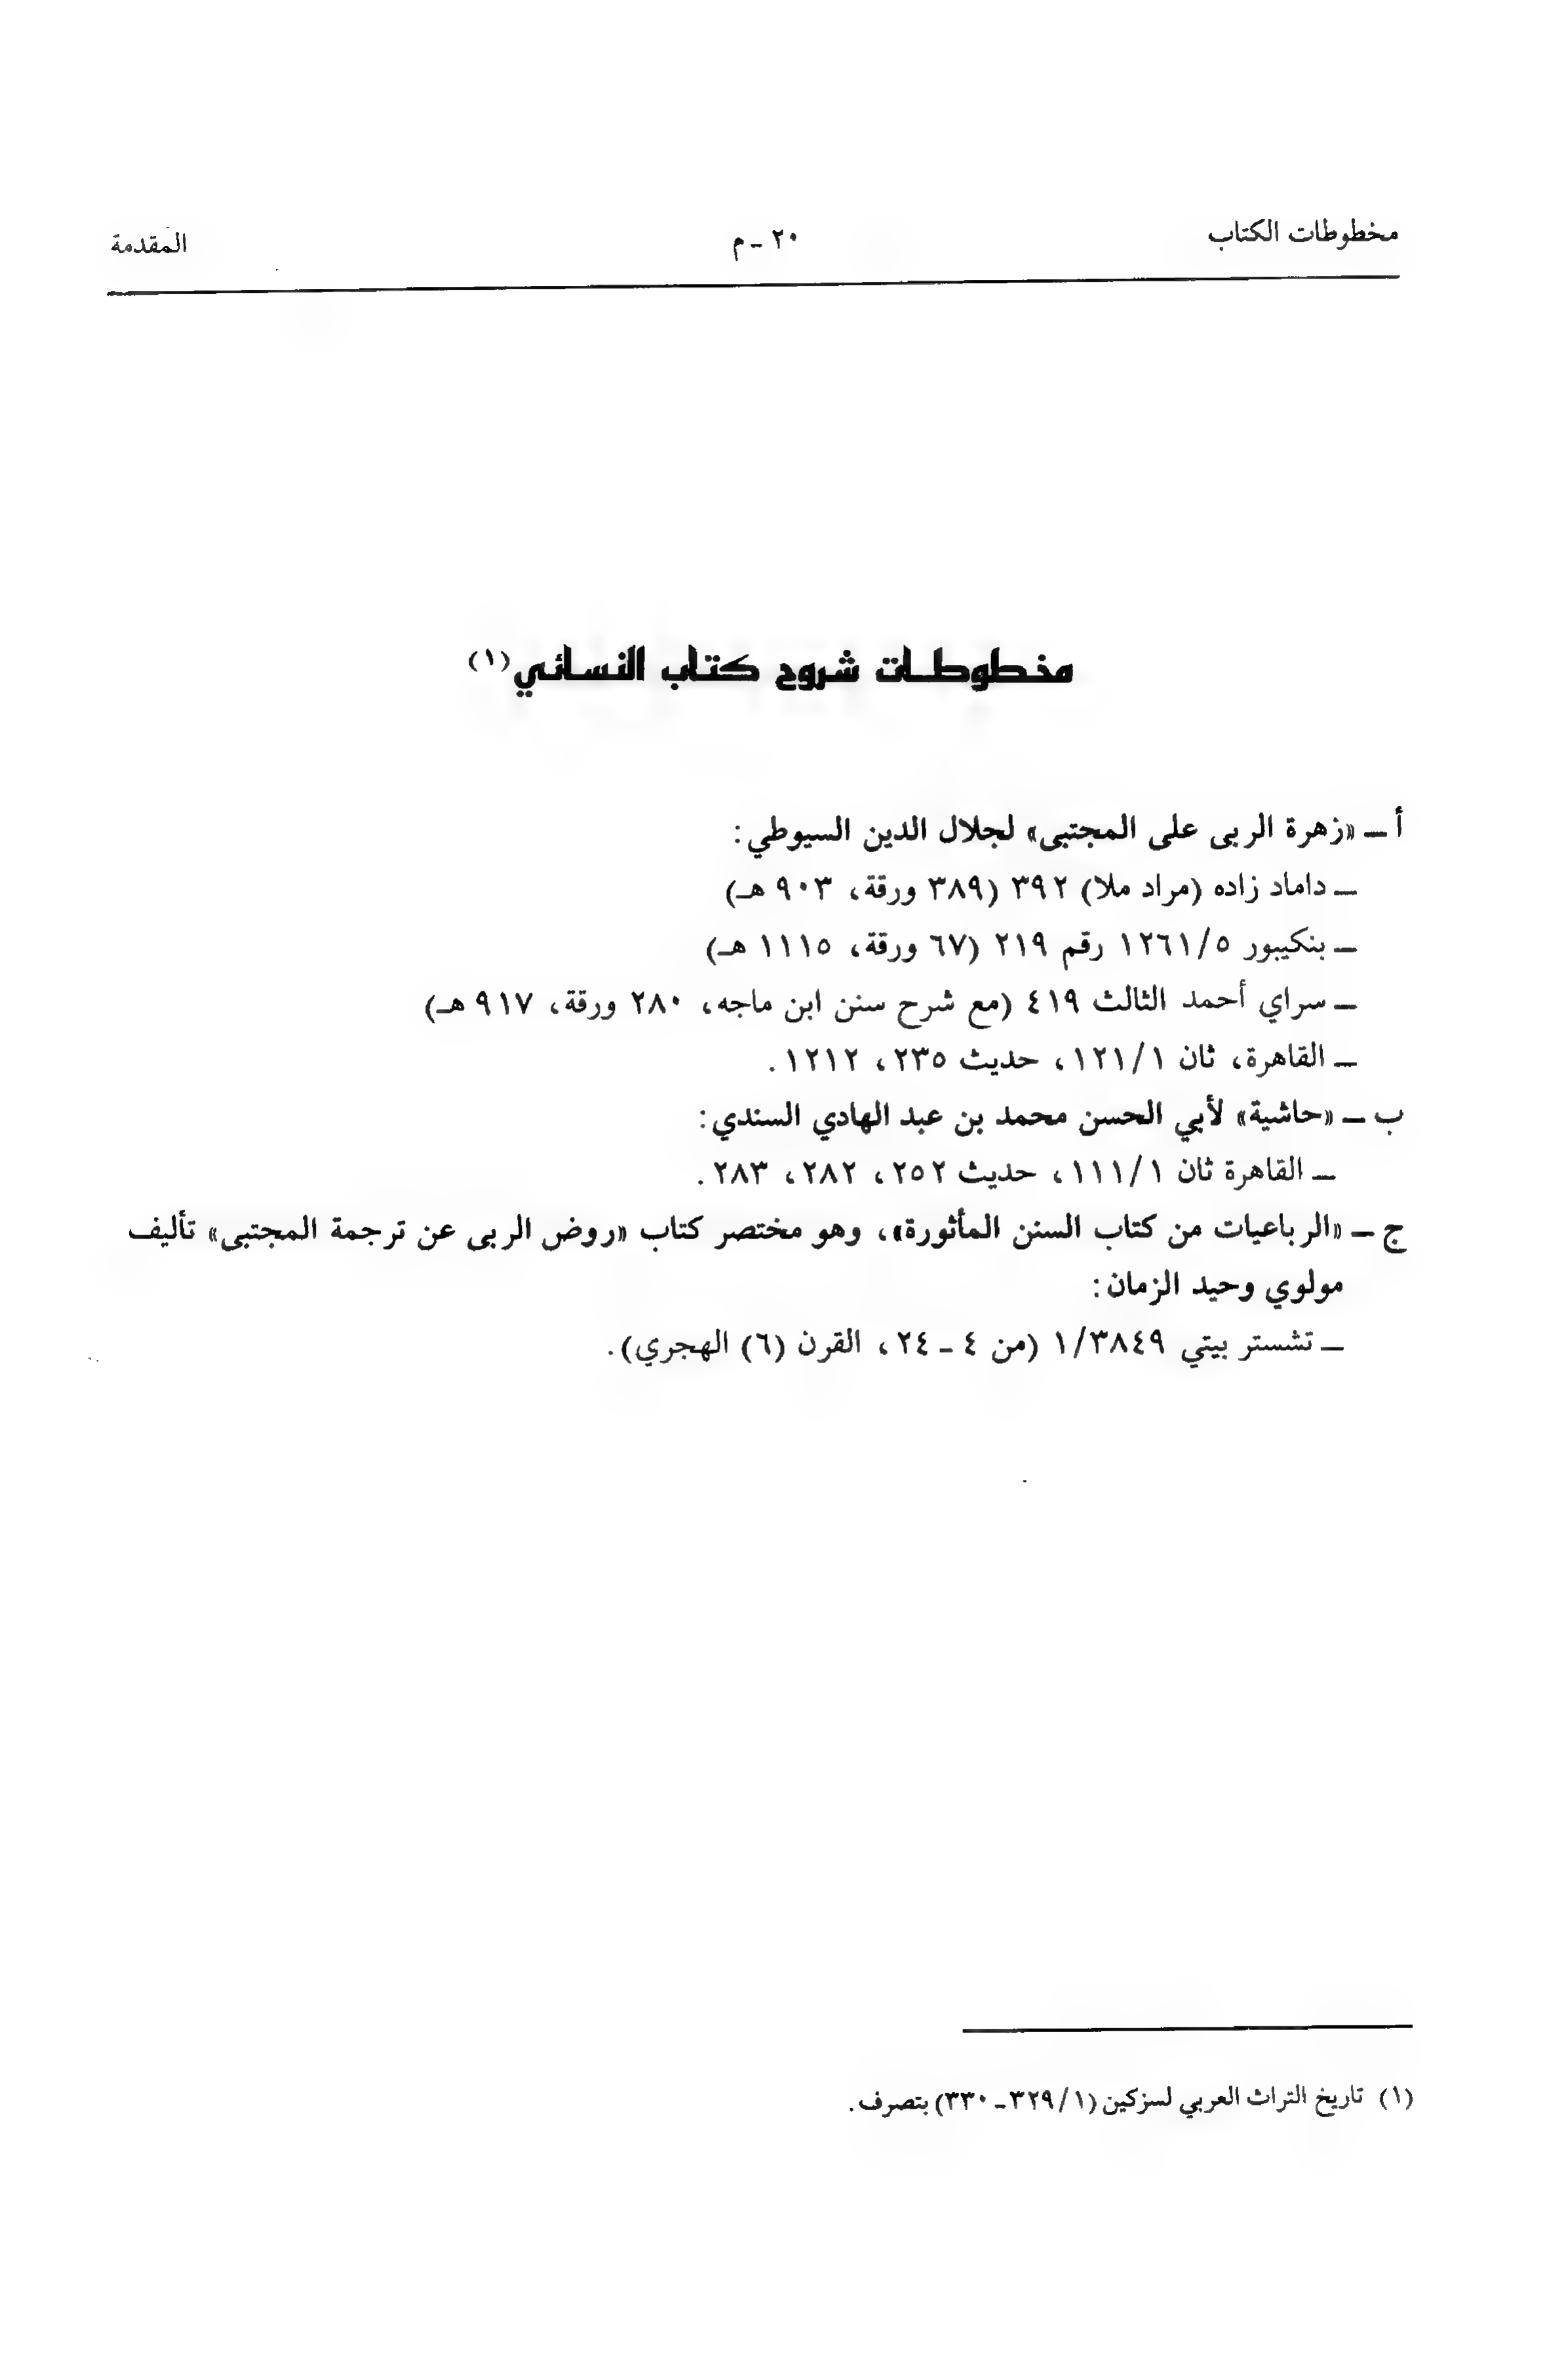 مخطوطات الكتاب
٢٠ - م
المقدمة
مخطوطات شروح كتاب النسائي (١)
أ - «زهرة الربى على المجتبى» لجلال الدين السيوطي:
- داماد زاده (مراد ملا) ٣٩٢ (٣٨٩ ورقة، ٩٠٣ هـ)
- بنكيبور ١٢٦١/٥ رقم ٢١٩ (٦٧ ورقة، ١١١٥ هـ)
- سراي أحمد الثالث ٤١٩ (مع شرح سنن ابن ماجه، ٢٨٠ ورقة، ٩١٧ هـ)
- القاهرة، ثان ١٢١/١، حديث ٢٣٥، ١٢١٢.
ب - «حاشية» لأبي الحسن محمد بن عبد الهادي السندي:
- القاهرة ثان ١١١/١، حديث ٢٥٢، ٢٨٢، ٢٨٣.
ج - «الرباعيات من كتاب السنن المأثورة»، وهو مختصر كتاب «روض الربى عن ترجمة المجتبى» تأليف
مولوي وحيد الزمان:
- تشستر بيتي ١/٣٨٤٩ (من ٤ - ٢٤، القرن (٦) الهجري).
(١) تاريخ التراث العربي لسزكين (٣٢٩/١ - ٣٣٠) بتصرف.